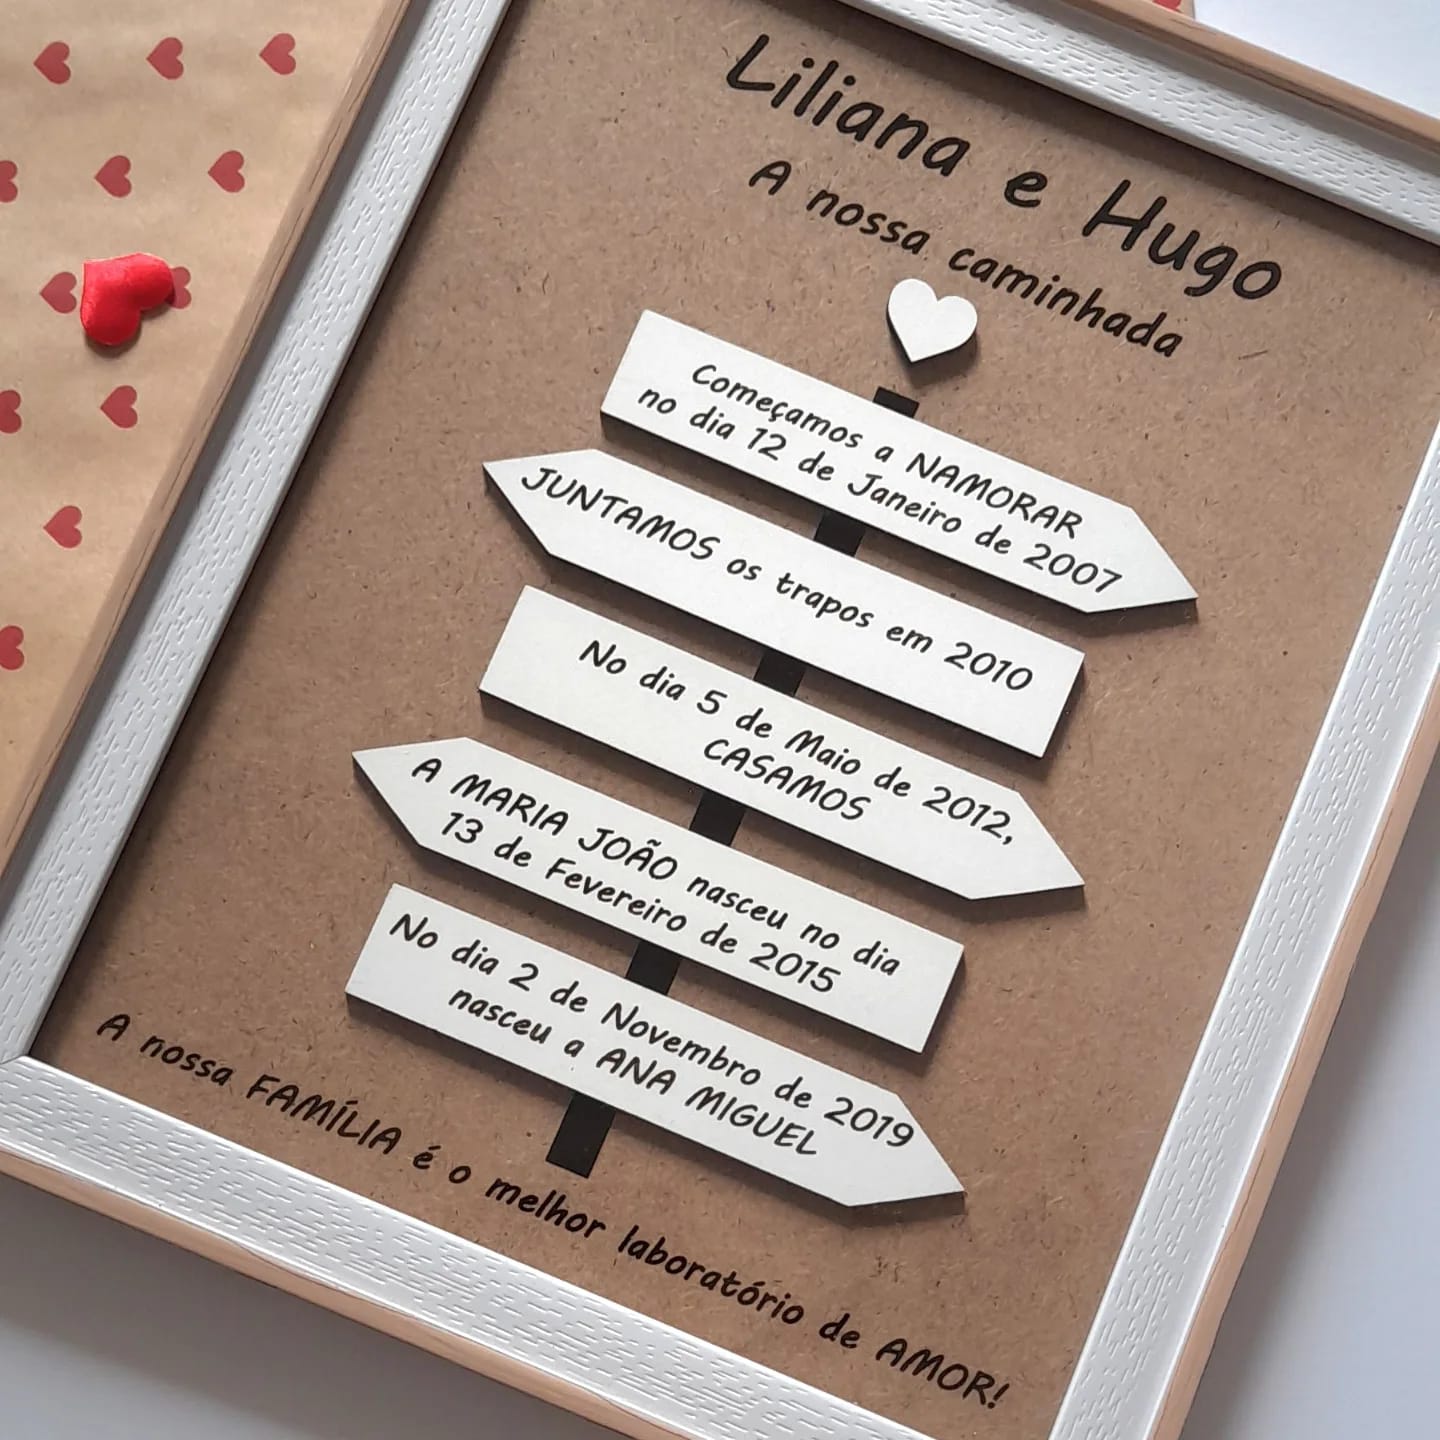 Liliana e Hugo
A nossa caminhada
Começamos a NAMORAR
no dia 12 de Janeiro de 2007
JUNTAMOS os trapos em 2010
No dia 5 de Maio de 2012,
CASAMOS
A MARIA JOÃO nasceu no dia
13 de Fevereiro de 2015
No dia 2 de Novembro de 2019
nasceu a ANA MIGUEL
A nossa FAMÍLIA é o melhor laboratório de AMOR!